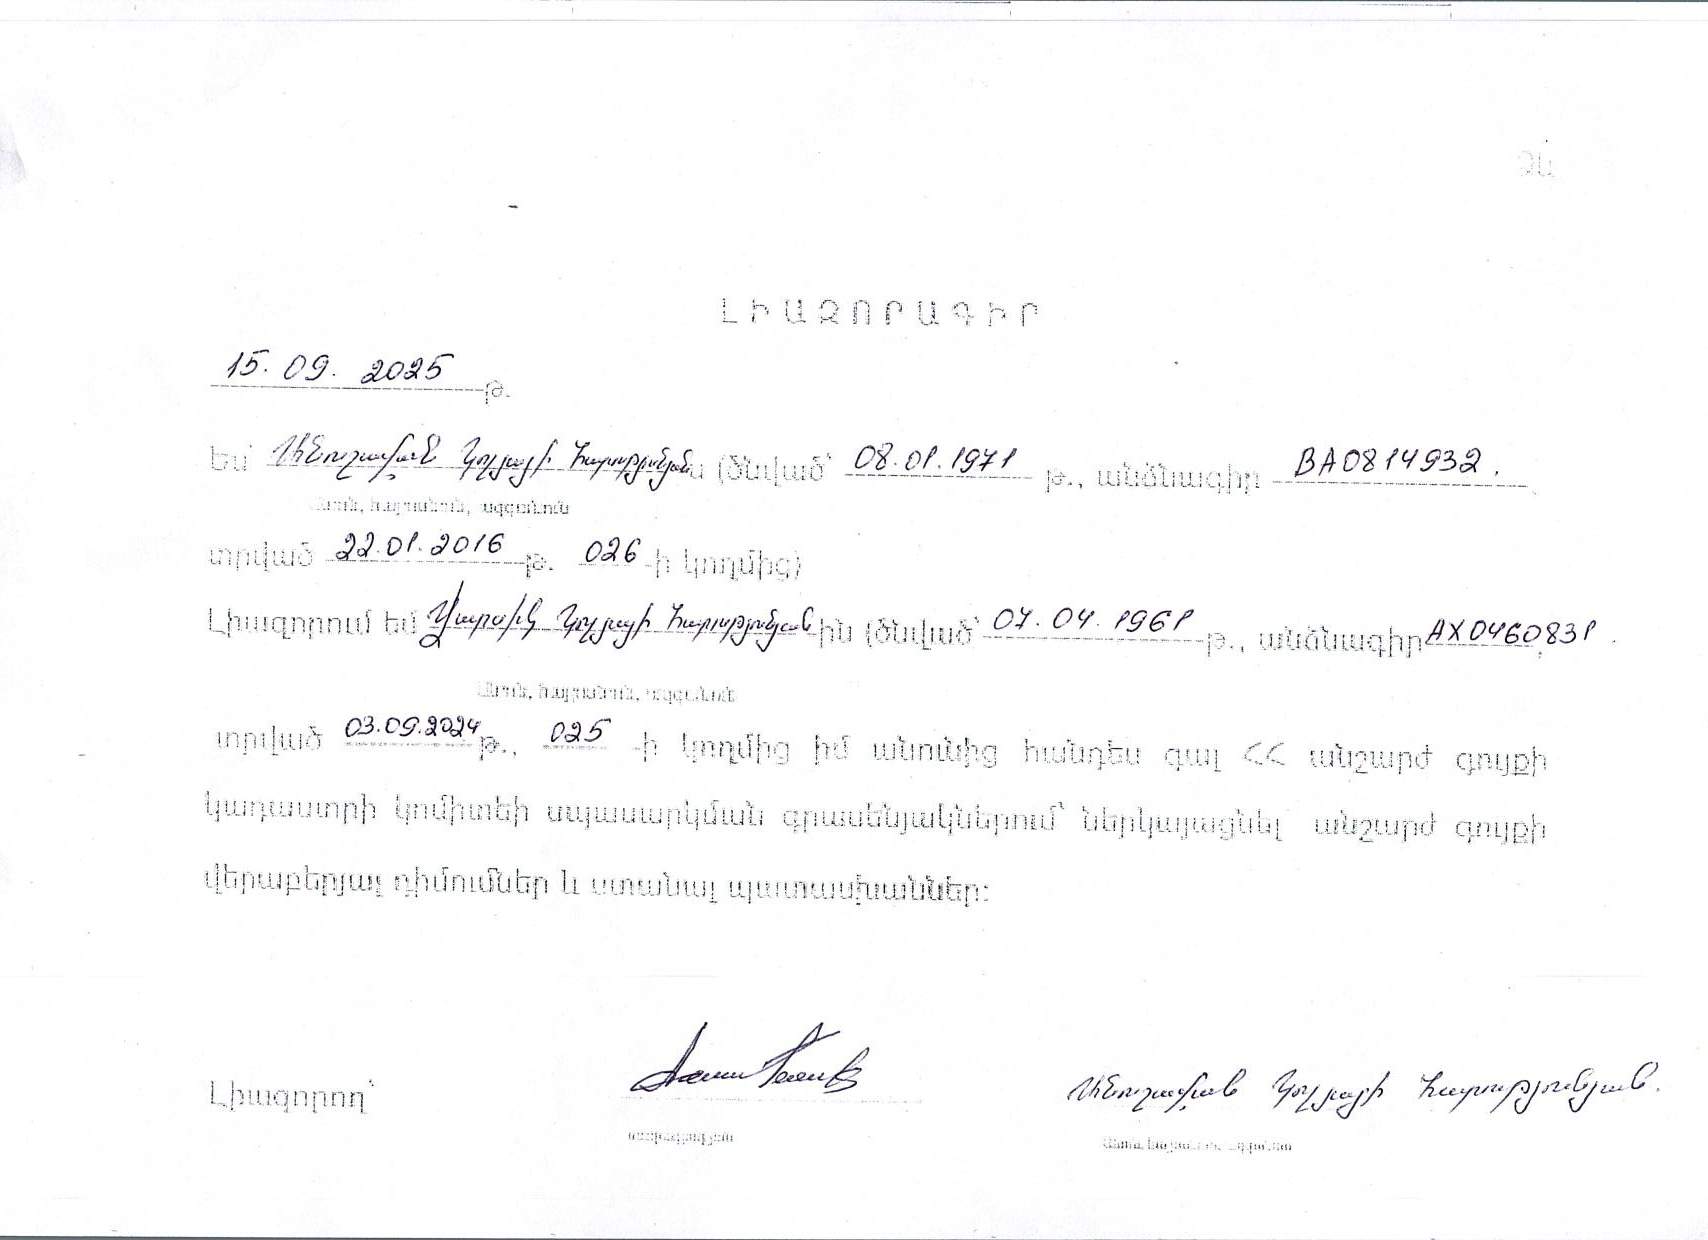 ՁԱ
ԼԻԱԶՈՐԱԳԻՐ
15. 09. 2025 թ.
Ես՝ Անուշավան Կոլյայի Հարությունյանս (ծնված՝ 08.01.1971 թ., անձնագիր BA0814932.
Անուն, հայրանուն, ազգանուն
տրված 22.01.2016 թ. 026-ի կողմից)
Լիազորում եմ Կոլյայի Հարությունյան-ին (ծնված՝ 07.04.1961 թ., անձնագիր AX0460831.
Անուն, հայրանուն, ազգանուն
տրված 03.09.2024 թ., 025 -ի կողմից իմ անունից հանդես գալ ՀՀ անշարժ գույքի
կադաստրի կոմիտեի սպասարկման գրասենյակներում՝ ներկայացնել անշարժ գույքի
վերաբերյալ դիմումներ և ստանալ պատասխաններ:
Լիազորող՝ Անուշավան Կոլյայի Հարությունյան.
ստորագրություն Անուն, հայրանուն, ազգանուն